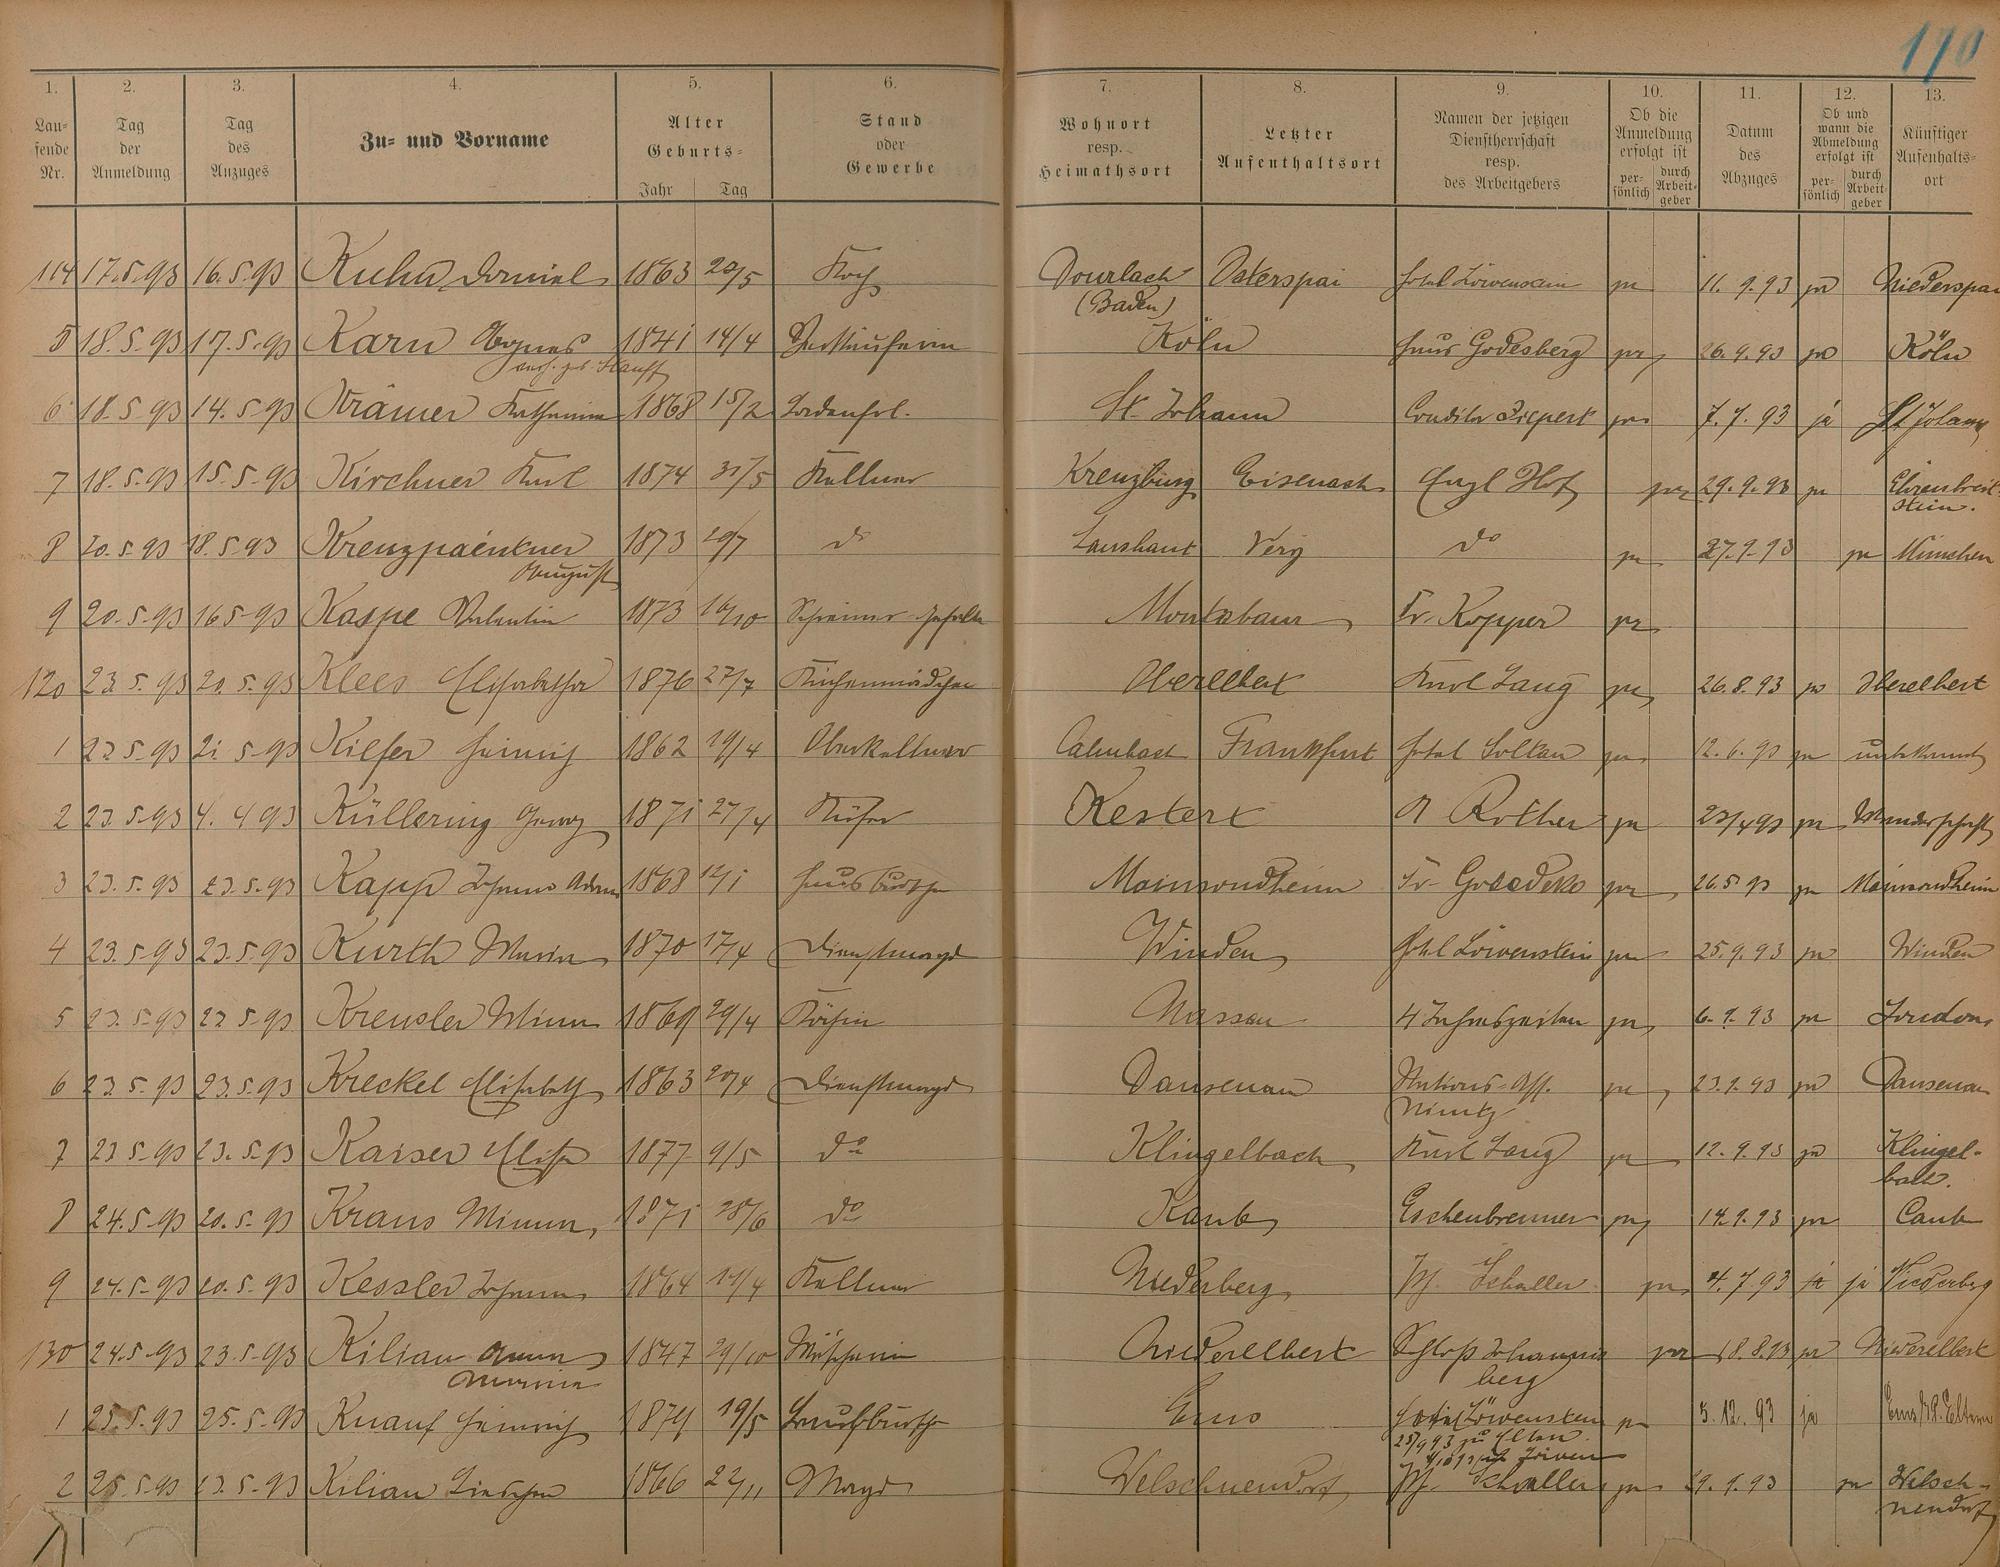 170
1. 2. 3. 4. 5. 6. 7. 8. 9. 10. 11. 12. 13.
Lau-
fende
Nr.
Tag
der
Anmeldung
Tag
des
Anzuges
Zu- und Vorname
Alter
Geburts-
Jahr Tag
Stand
oder
Gewerbe
Wohnort
resp.
Heimathsort
Letzter
Aufenthaltsort
Namen der jetzigen
Dienstherrschaft
resp.
des Arbeitgebers
Ob die
Anmeldung
erfolgt ist
per-
sönlich
durch
Arbeit-
geber
Datum
des
Abzuges
Ob und
wann die
Abmeldung
erfolgt ist
per-
sönlich
durch
Arbeit-
geber
Künftiger
Aufenhalts-
ort
114 17.5.93 16.5.93 Kuhn Daniel 1863 Koch Dourlach Osterspai Hotel 11.9.93 ja Niederspai
(Baden)
5 18.5.93 17.5.93 Karn Agnes 1841 14/4 Verkäuferin Köln Haus Godesberg ja 26.9.93 ja Köln
geb. Hauff
6 18.5.93 14.5.93 Krämer Katharina 1868 15/2 Ladenfrl. St. Johann Conditor ja 7.7.93 ja St Johann
7 18.5.93 15.5.93 Kirchner Karl 1874 31/5 Kellner Kreuzburg Eisenach Engl Hof ja 29.9.93 ja Ehrenbreit-
stein.
8 20.5.93 18.5.93 1873 20/7 do Verz do ja 27.9.93 ja München
August
9 20.5.93 16.5.93 Kaspe Valentin 1873 16/10 Schreiner Montabaur Fr. Kopper ja
120 23.5.93 20.5.93 Klees Elisabetha 1876 27/7 Küchenmädchen Oberelbert Karl Lang ja 26.8.93 ja Oberelbert
1 23.5.93 21.5.93 Kiefer Heinrich 1862 19/4 Oberkellner Calmbach Frankfurt Hotel Soltau ja 12.6.93 ja unbekannt
2 23.5.93 4.4.93 Küllering Georg 1871 27/4 Küfer Kestert A Rother ja ja Wanderschaft
3 23.5.93 23.5.93 Kapp Johann Adam 1868 12/1 Hausbursche Mainsondheim Fr. ja 26.5.93 ja Mainsondheim
4 23.5.93 23.5.93 Kurth Maria 1870 17/4 Dienstmagd Winden Hotel Löwenstein ja 25.9.93 ja Winden
5 23.5.93 23.5.93 Kreusler Minna 1869 29/4 Köchin Nassau 4 Jahreszeiten ja 6.9.93 ja London
6 23.5.93 23.5.93 Kreckel Elisabeth 1863 20/4 Dienstmagd Dausenau Stations-Ass. ja 23.9.93 ja Dausenau
7 23.5.93 23.5.93 Kaiser Elise 1877 9/5 do Klingelbach Karl Lang ja 12.9.93 ja Klingel-
bach.
8 24.5.93 20.5.93 Kraus Minna 1871 28/6 do Kaub Eschenbrenner ja 14.9.93 ja Caub
9 24.5.93 20.5.93 Kessler Johann 1864 Kellner Niederberg Schaller ja 4.7.93 ja Niederberg
130 24.5.93 23.5.93 Kilian Anna 1847 29/10 Wäscherin Niederelbert Schloß Johannis ja 18.8.93 ja Niederelbert
Maria berg
1 25.5.93 25.5.93 Knauf Heinrich 1879 19/5 Laufbursche Ems Hotel Löwenstein ja 3.12.93 ja Ems Eltern
2 25.5.93 23.5.93 Kilian Lieschen 1866 22/11 Magd Welschneudorf Schaller ja 29.9.93 ja Welsch-
neudorf